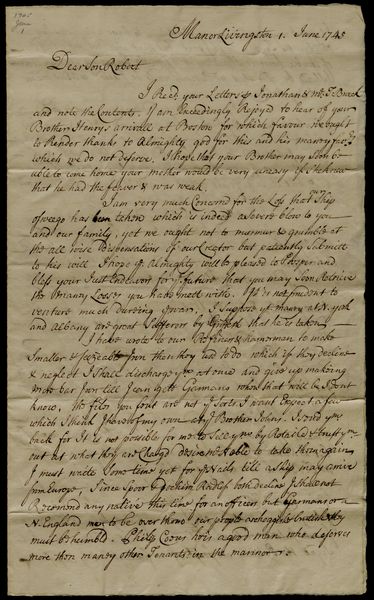 1745
June
1
Manor Livingston 1. June 1745
Dear Son Robert
I Recd. your Letters by Jonathan &
and note the Contents. I am Exceedingly Rejoyd to hear of your
Brother Henrys arrivall at Boston for which favour we ought
to Render thanks to Almighty god for this and his many
which we do not deserve. I hope that your Brother may Soon be
able to come home your mother would be very uneasy if She knew
that he had the feaver & was weak.
I am very much Concernd for the Loss that ye Ship
Oswego has been taken which is indeed a Severe blow to you
and our family, yet we ought not to murmur & grumble at
the all wise Dispensations of our Creator but patiently Submitt
to his will I hope ye Almighty will be pleased to Prosper and
bless your Just Endeavors for ye future that you may Soon Retrieve
the Many Losses you have meet with. It is not prudent to
venture much dureing ye warr. I Suppose yt many at N. york
and Albany are great Sufferers by that he is taken
I have wrote to our &
Smaller & for than they use to do which if they decline
& neglect I Shall discharge ym at once and give up making
more bar Iron till I can gett Germans when that will be I dont
know. the files you Sent are not ye Sorts I want Except a few
which I think I have of my own Brother Johns. I Send ym
back for It is not possible for me to Sell ym by Retaile & trust ym
out att what they are Charg'd desire Mr to take them again
I must waite Some time yet for ye nails till a Ship may arrive
from Europe. Since Spoor & both decline I Shall not
Recomend any native this time for an officer but Germans or a
N. England man to be over them our people are they
must be humbld. Philip is a good man who deserves
more than many other Tenants in the mannor